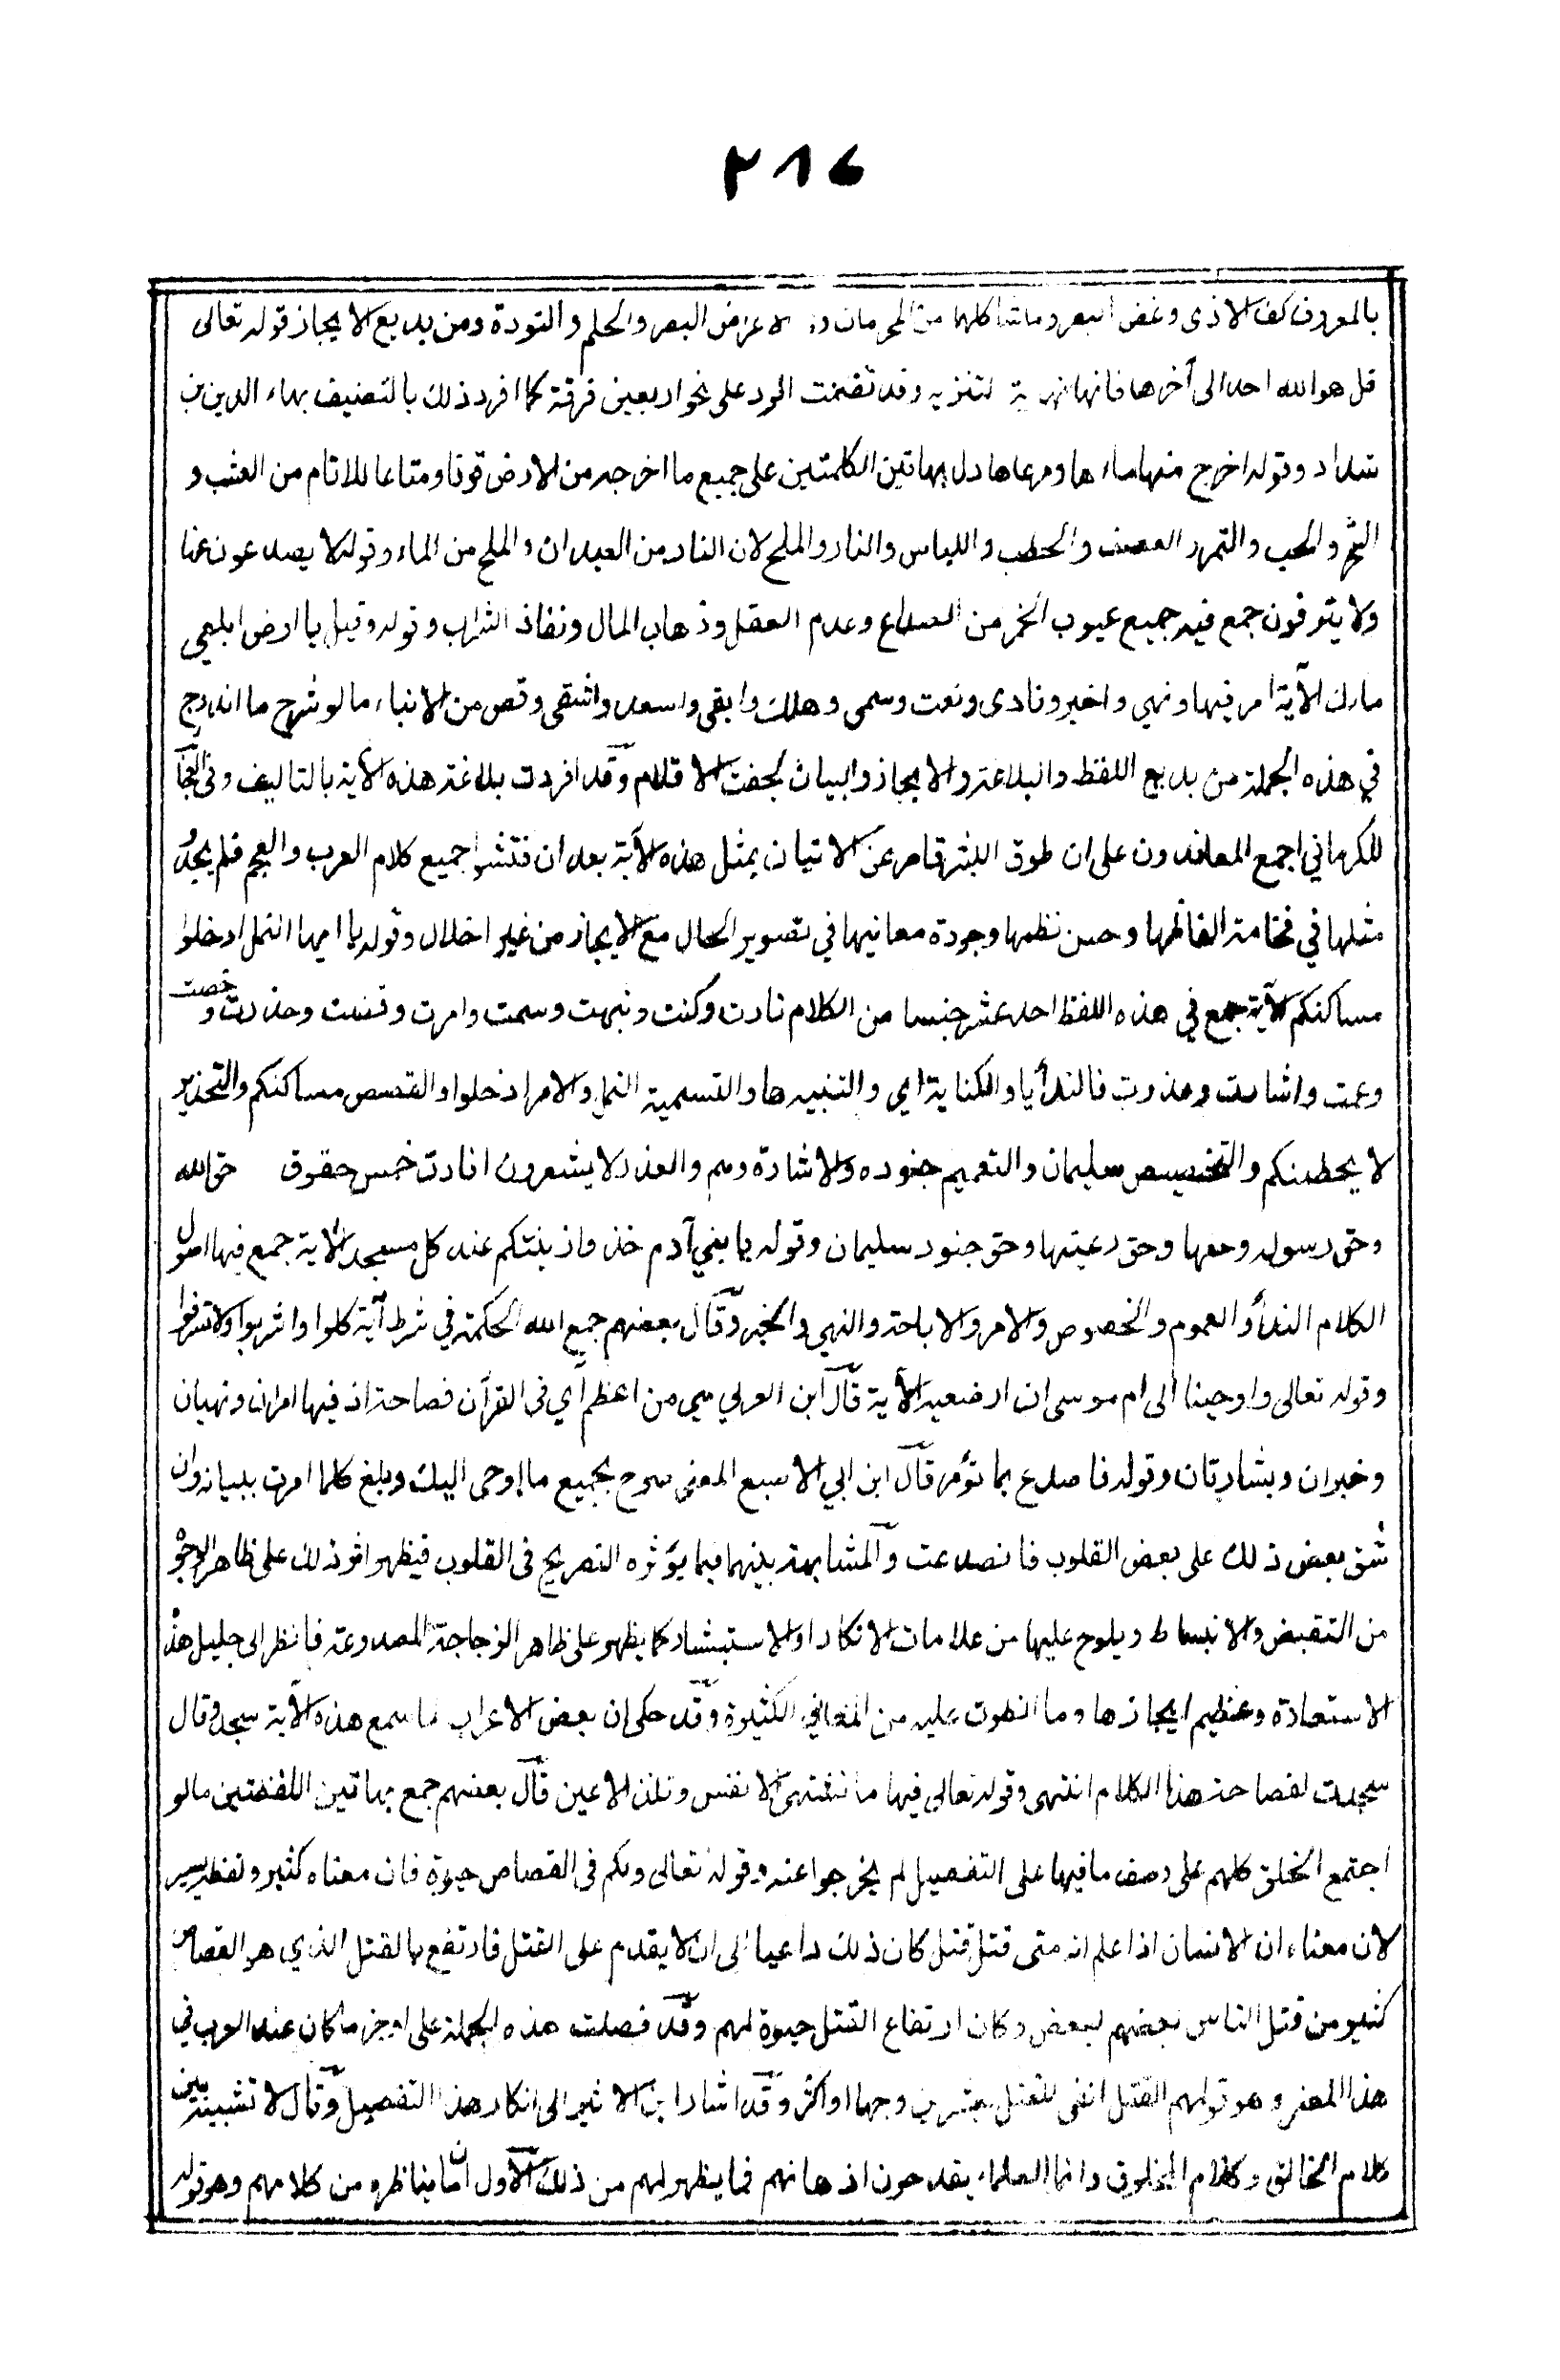 ٢١٤
بالمعروف كف الاذى وغض البصر وما شاكلهما من المحرمات الاعراض الصبر والحلم والتودة ومن بديع الايجاز قوله تعالى
قل هو الله احد الى آخرها فانها نهاية التنزيه وقد تضمنت الرد على نحو اربعين فرقة كما افرد ذلك بالتصنيف بهاء الدين بن
شداد وقوله اخرج منها ماءها ومرعاها دل بهاتين الكلمتين على جميع ما اخرجه من الارض قوتا ومتاعا للانام من العشب و
الشجر والحب والتمر والعصف والحطب واللباس والنار والملح لان النار من العيدان والملح من الماء وقوله لا يصدعون عنها
ولا ينزفون جمع فيه جميع عيوب الخمر من الصداع وعدم العقل وذهاب المال ونفاذ الشراب وقوله وقيل يا ارض ابلعي
ماءك الآية امر فيها ونهي واخبر ونادى ونعت وسمى وهلك وابقى واسعد واشقى وقص من الانباء ما لو شرح ما اندرج
في هذه الجملة من بديع اللفظ والبلاغة والايجاز والبيان لجفت الاقلام وقد افردت بلاغة هذه الآية بالتاليف وفي العجائب
للكرماني اجمع المعاندون على ان طوق البشر قاصر عن الاتيان بمثل هذه الآية بعد ان فتشوا جميع كلام العرب والعجم فلم يجدوا
مثلها في فخامة الفاظها وحسن نظمها وجودة معانيها في تصوير الحال مع الايجاز من غير اخلال وقوله يا ايها النمل ادخلوا
مساكنكم الآية جمع في هذه اللفظ احد عشر جنسا من الكلام نادت وكنت ونبهت وسمت وامرت وقصت وحذرت وخصت
وعمت واشارت وعذرت فالندأ يا والكناية اي والتنبيه ها والتسمية النمل والامر ادخلوا والقصص مساكنكم والتحذير
لا يحطمنكم والتخصيص سليمان والتعميم جنوده والاشارة وهم والعذر لا يشعرون افادت خمس حقوق حق الله
وحق رسوله وحقها وحق رعيتها وحق جنود سليمان وقوله يا بني آدم خذوا زينتكم عند كل مسجد الآية جمع فيها اصول
الكلام الندأ والعموم والخصوص والامر والاباحة والنهي والخبر وقال بعضهم جمع الله الحكمة في شرط آية كلوا واشربوا ولا تسرفوا
وقوله تعالى واوحينا الى ام موسى ان ارضعيه الآية قال ابن العربي هي من اعظم آي في القرآن فصاحة اذ فيها امران ونهيان
وخبران وبشارتان وقوله فاصدع بما تؤمر قال ابن ابي الاصبع المعنى صرح بجميع ما اوحى اليك وبلغ كلما امرت ببيانه وان
شق بعض ذلك على بعض القلوب فانصدعت والمشابهة بينهما فيما يؤثره التصريح في القلوب فيظهر اثر ذلك على ظاهر الوجوه
من التقبض والانبساط ويلوح عليها من علامات الانكار او الاستبشار كما يظهر على ظاهر الزجاجة المصدوعة فانظر الى جليل هذه
الاستعارة وعظيم ايجازها وما انطوت عليه من المعاني الكثيرة وقد حكى ان بعض الاعراب لما سمع هذه الآية سجد وقال
سجدت لفصاحة هذا الكلام انتهى وقوله تعالى فيها ما تشتهي الانفس وتلذ الاعين قال بعضهم جمع بهاتين اللفظتين ما لو
اجتمع الخلق كلهم على وصف ما فيها على التفصيل لم يخرجوا عنه وقوله تعالى ولكم في القصاص حيوة فان معناه كثير ولفظه يسير
لان معناه ان الانسان اذا علم انه متى قتل قتل كان ذلك داعيا الى ان لا يقدم على القتل فارتفع بالقتل الذي هو القصاص
كثير من قتل الناس بعضهم لبعض وكان ارتفاع القتل حيوة لهم وقد فصلت هذه الجملة على اوجز ما كان عند العرب في
هذا المعنى وهو قولهم القتل انفى للقتل بعشرين وجها او اكثر وقد اشار ابن الاثير الى انكار هذا التفصيل وقال لا تشبيه بين
كلام الخالق وكلام المخلوق وانما العلماء يقدحون اذهانهم فيما يظهر لهم من ذلك الاول ان ما يناظره من كلامهم وهو قوله